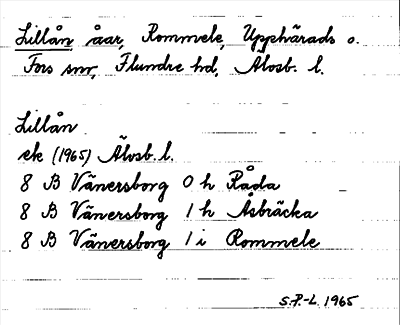 Lillån åar, Rommele, Upphärads o.
Fors snr, Flundre hd, Älvsb. l.
Lillån
ek (1965) Älvsb. l.
8 B Vänersborg 0 h Råda
8 B Vänersborg 1 h Åsbräcka
8 B Vänersborg 1 i Rommele
S.P-L. 1965